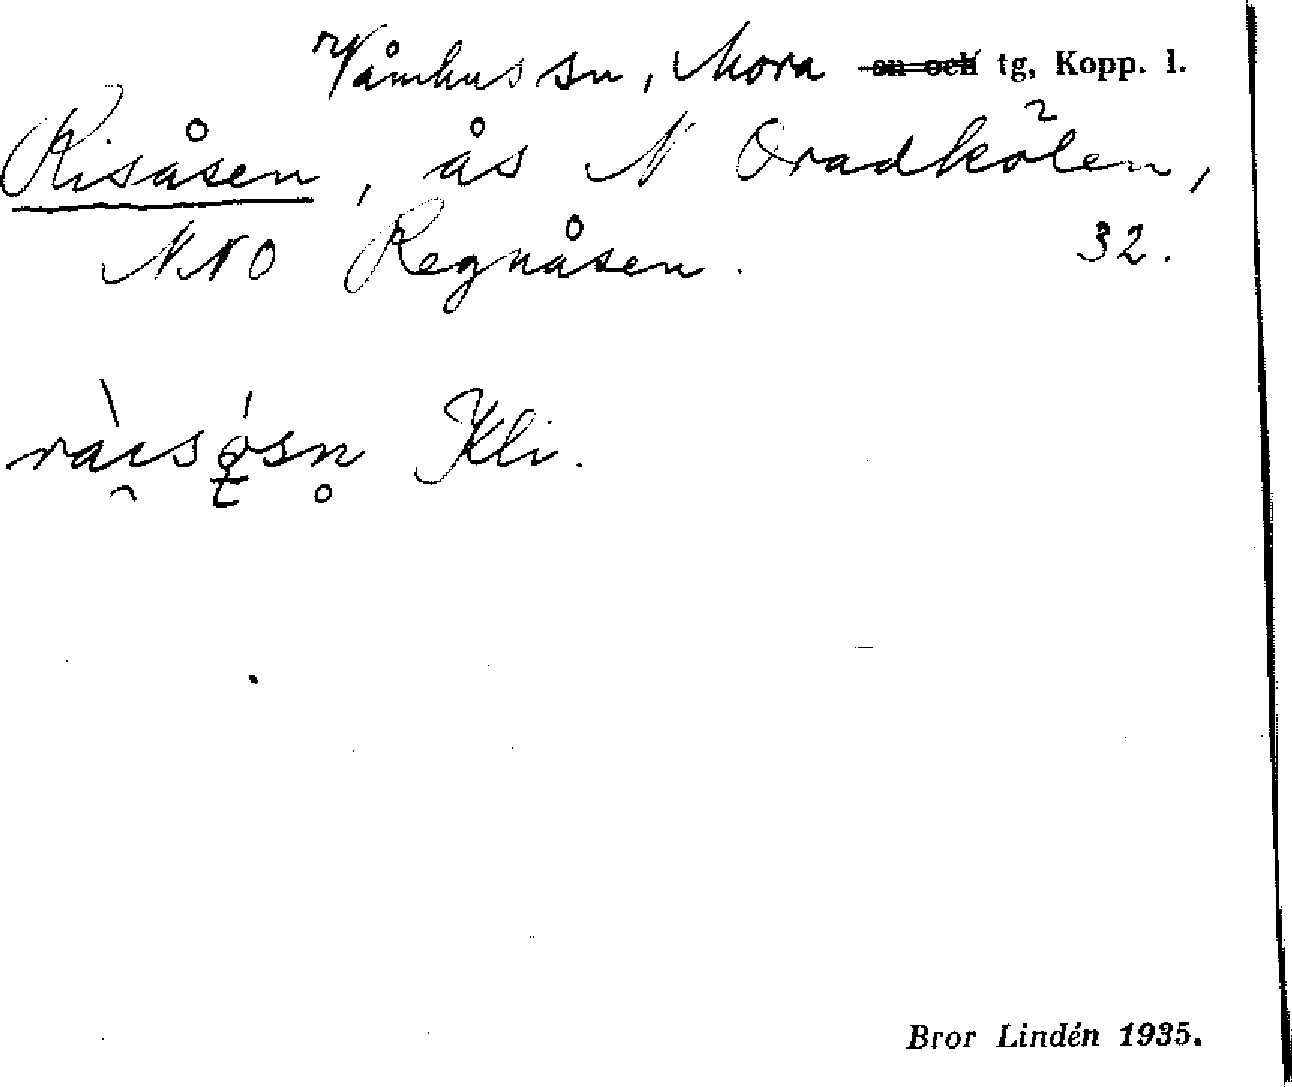 Våmhus sn, Mora sn och tg, Kopp. l.
Risåsen, ås N Oradkölen,
NNO Regnåsen. 32.
Kli.
Bror Lindén 1935.